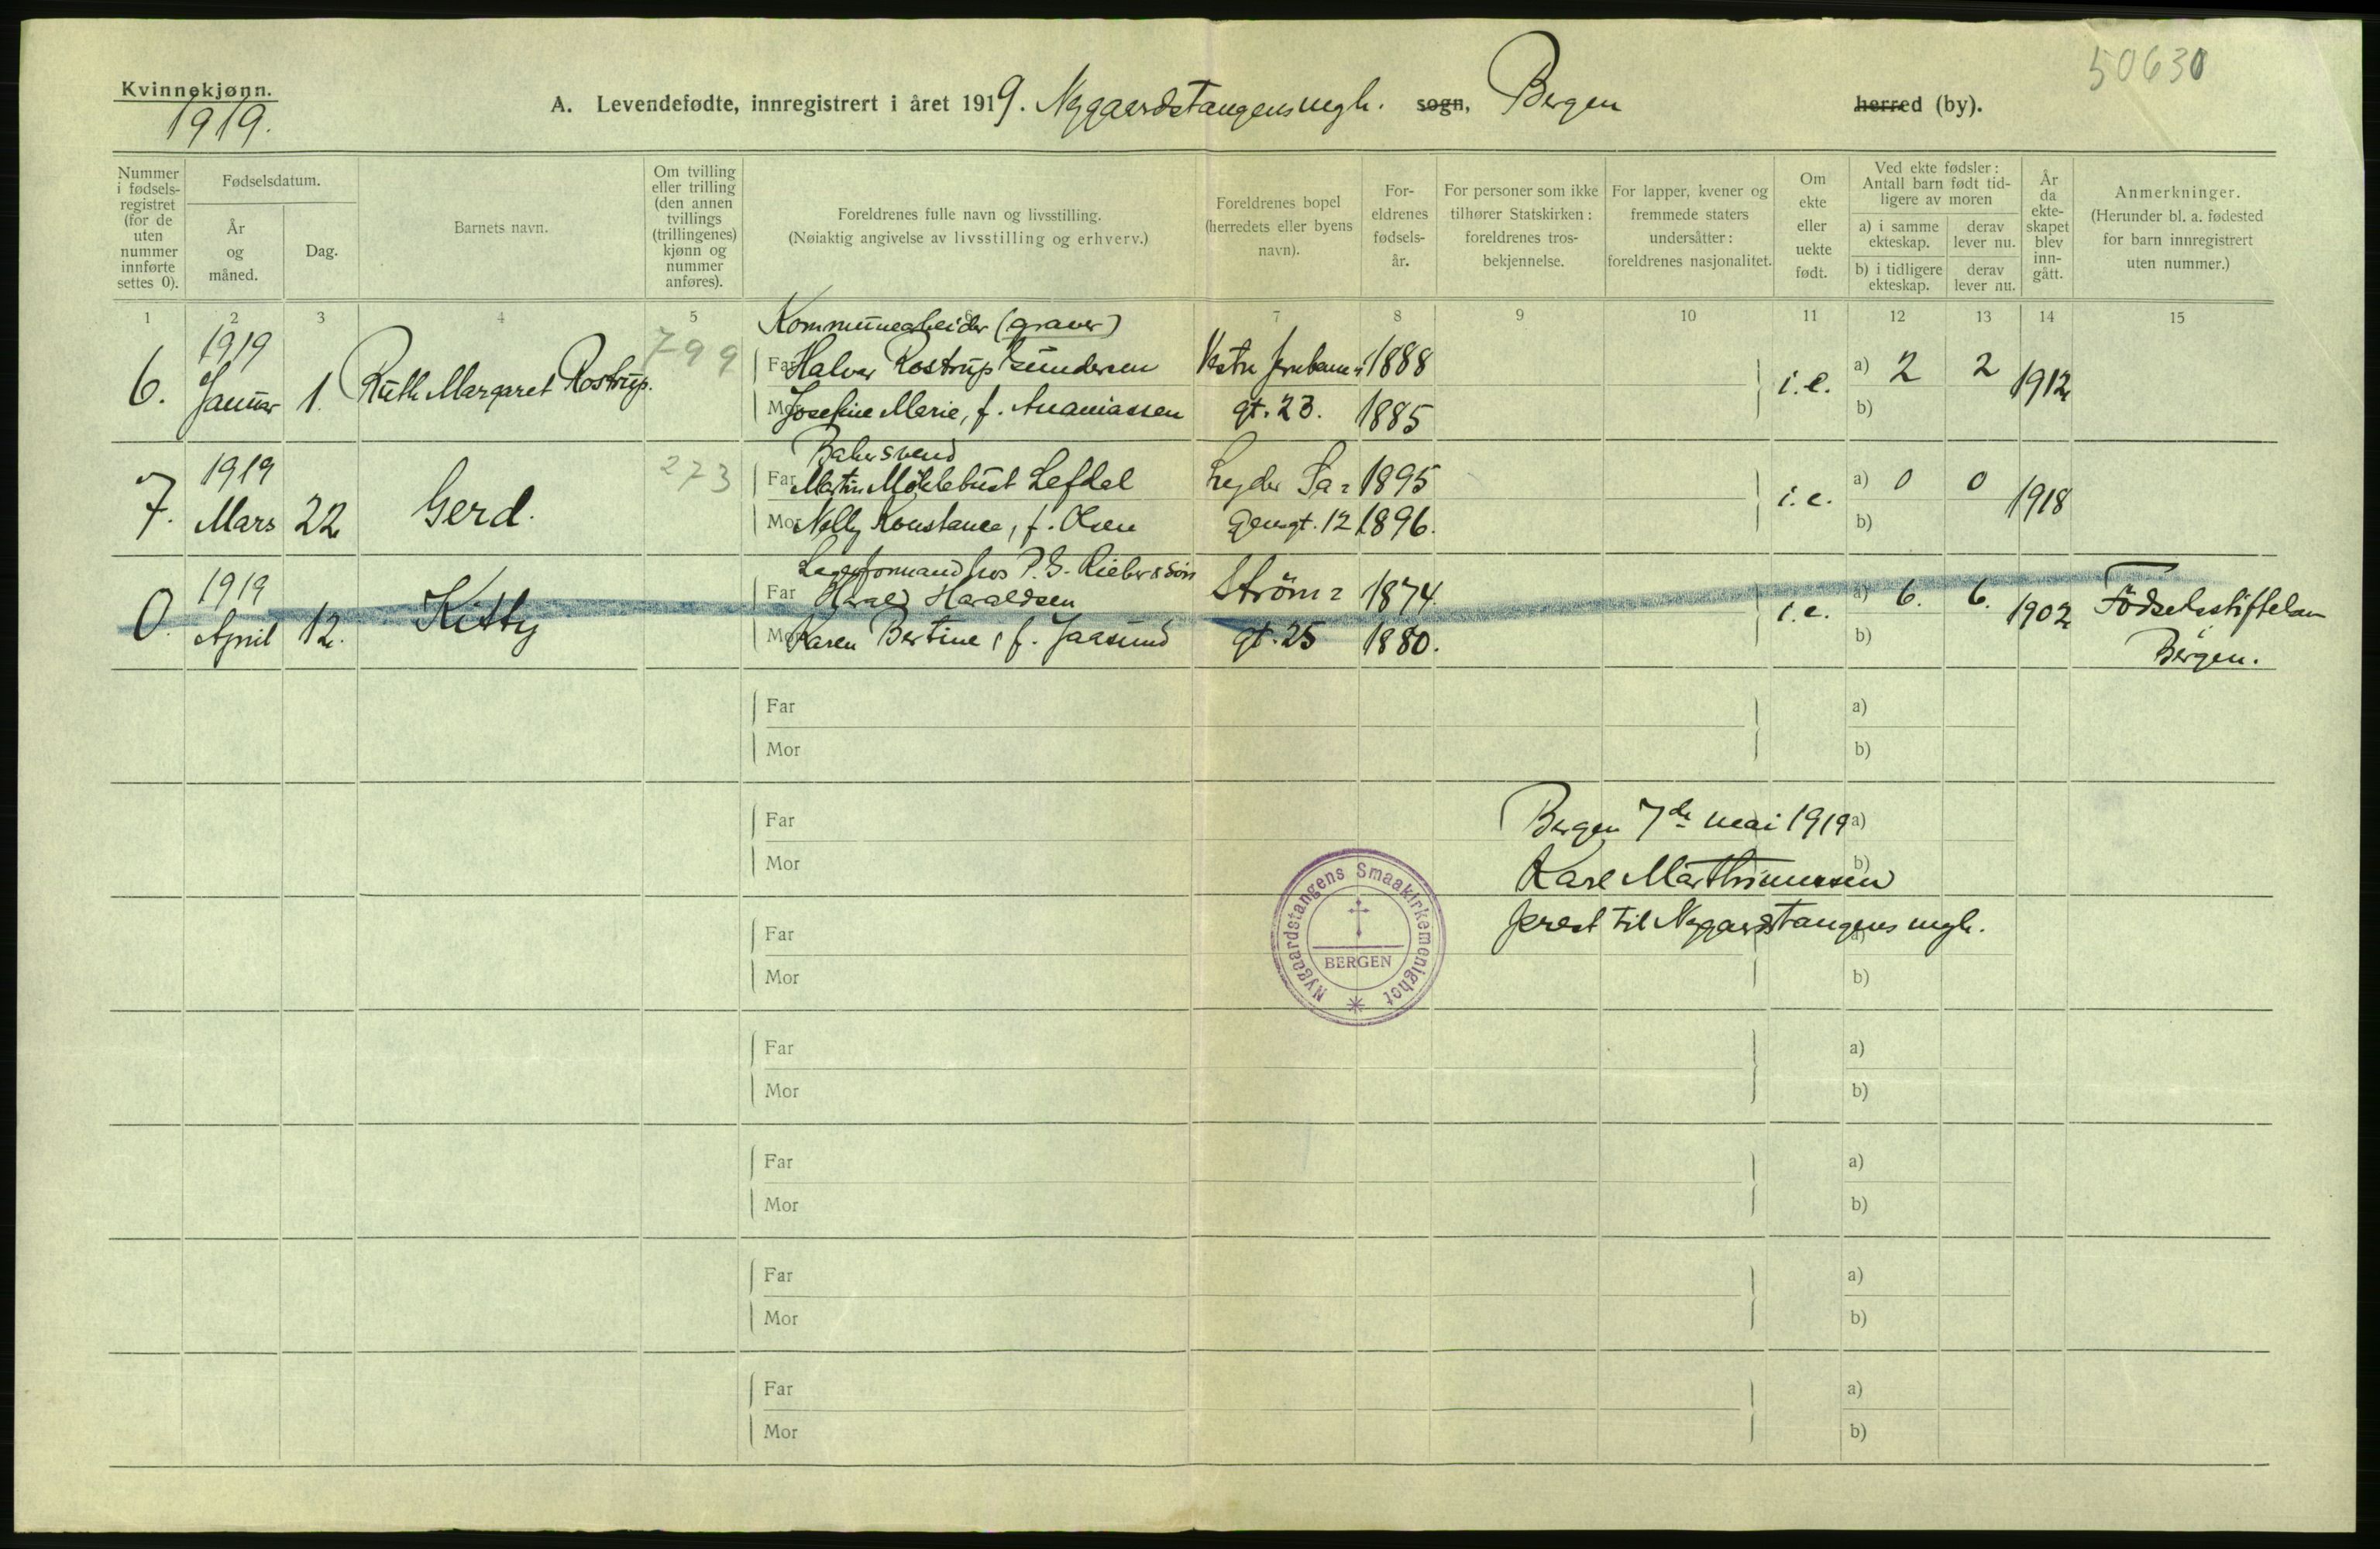 50630
Kvinnekjønn.
1919.
A. Levendefødte, innregistrert i året 1919. Nygaardstangens mgh. sogn, Bergen herred (by).
Nummer i fødsels-registret (for de uten nummer innførte settes 0).
Fødselsdatum.
År og måned.
Dag.
Barnets navn.
Om tvilling eller trilling (den annen tvillings (trillingenes) kjønn og nummer anføres).
Foreldrenes fulle navn og livsstilling.
(Nøiaktig angivelse av livsstilling og erhverv.)
Foreldrenes bopel (herredets eller byens navn).
For-eldrenes fødsels-år.
For personer som ikke tilhører Statskirken: foreldrenes tros-bekjennelse.
For lapper, kvener og fremmede staters undersåtter: foreldrenes nasjonalitet.
Om ekte eller uekte født.
Ved ekte fødsler: Antall barn født tid-ligere av moren
a) i samme ekteskap.
derav lever nu.
b) i tidligere ekteskap.
derav lever nu.
År da ekte-skapet blev inn-gått.
Anmerkninger.
(Herunder bl. a. fødested for barn innregistrert uten nummer.)
1 2 3 4 5 6 7 8 9 10 11 12 13 14 15
Kommunearbeider (graver)
6. 1919 Januar 1. Ruth Margaret Rostrup. 799
Far Halvor Rostrup Gundersen Vestre Jernbane= 1888
Mor Josefine Marie, f. Ananiassen gt. 23. 1885
i. e. a) 2 2 1912
b)
Bakersvend
7. 1919 Mars 22 Gerd. 273
Far Martin Möklebust Lefdal Lyder Sa= 1895
Mor Nelly Konstance, f. Olsen gensgt. 12 1896.
i. e. a) 0 0 1918
b)
Lagerformand hos P. G. Rieber & Sön
0. 1919 April 12. Kitty
Far Harald Haraldsen Ström= 1874.
Mor Karen Bertine, f. Jaasund gt. 25 1880.
i. e. a) 6. 6. 1902 Födselsstiftelsen
b) Bergen.
Far a)
Mor b)
Far Bergen 7de mai 1919 a)
Mor Karl Marthinussen b)
Far prest til Nygaardstangens mgh. a)
Mor b)
Nygaardstangens Smaakirkemenighet
BERGEN
Far a)
Mor b)
Far a)
Mor b)
Far a)
Mor b)
Far a)
Mor b)